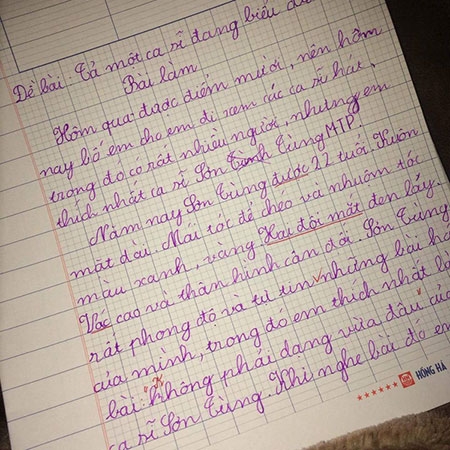 Đề bài: Tả một ca sĩ đang biểu d
Bài làm
Hôm qua được điểm mười, nên hôm
nay bố em cho em đi xem các ca sĩ hát,
trong đó có rất nhiều người, nhưng em
thích nhất ca sĩ Sơn Tùng MTP.
Năm nay Sơn Tùng được 22 tuổi. Khuôn
mặt dài. Mái tóc để chéo và nhuộm tóc
màu xanh, vàng. Hai đôi mắt đen láy.
Vác cao và thân hình cân đối. Sơn Tùng
rất phong độ và tự tin những bài há
của mình, trong đó em thích nhất là
bài: "Không phải dạng vừa đâu" của
ca sĩ Sơn Tùng. Khi nghe bài đo em
HỒNG HÀ